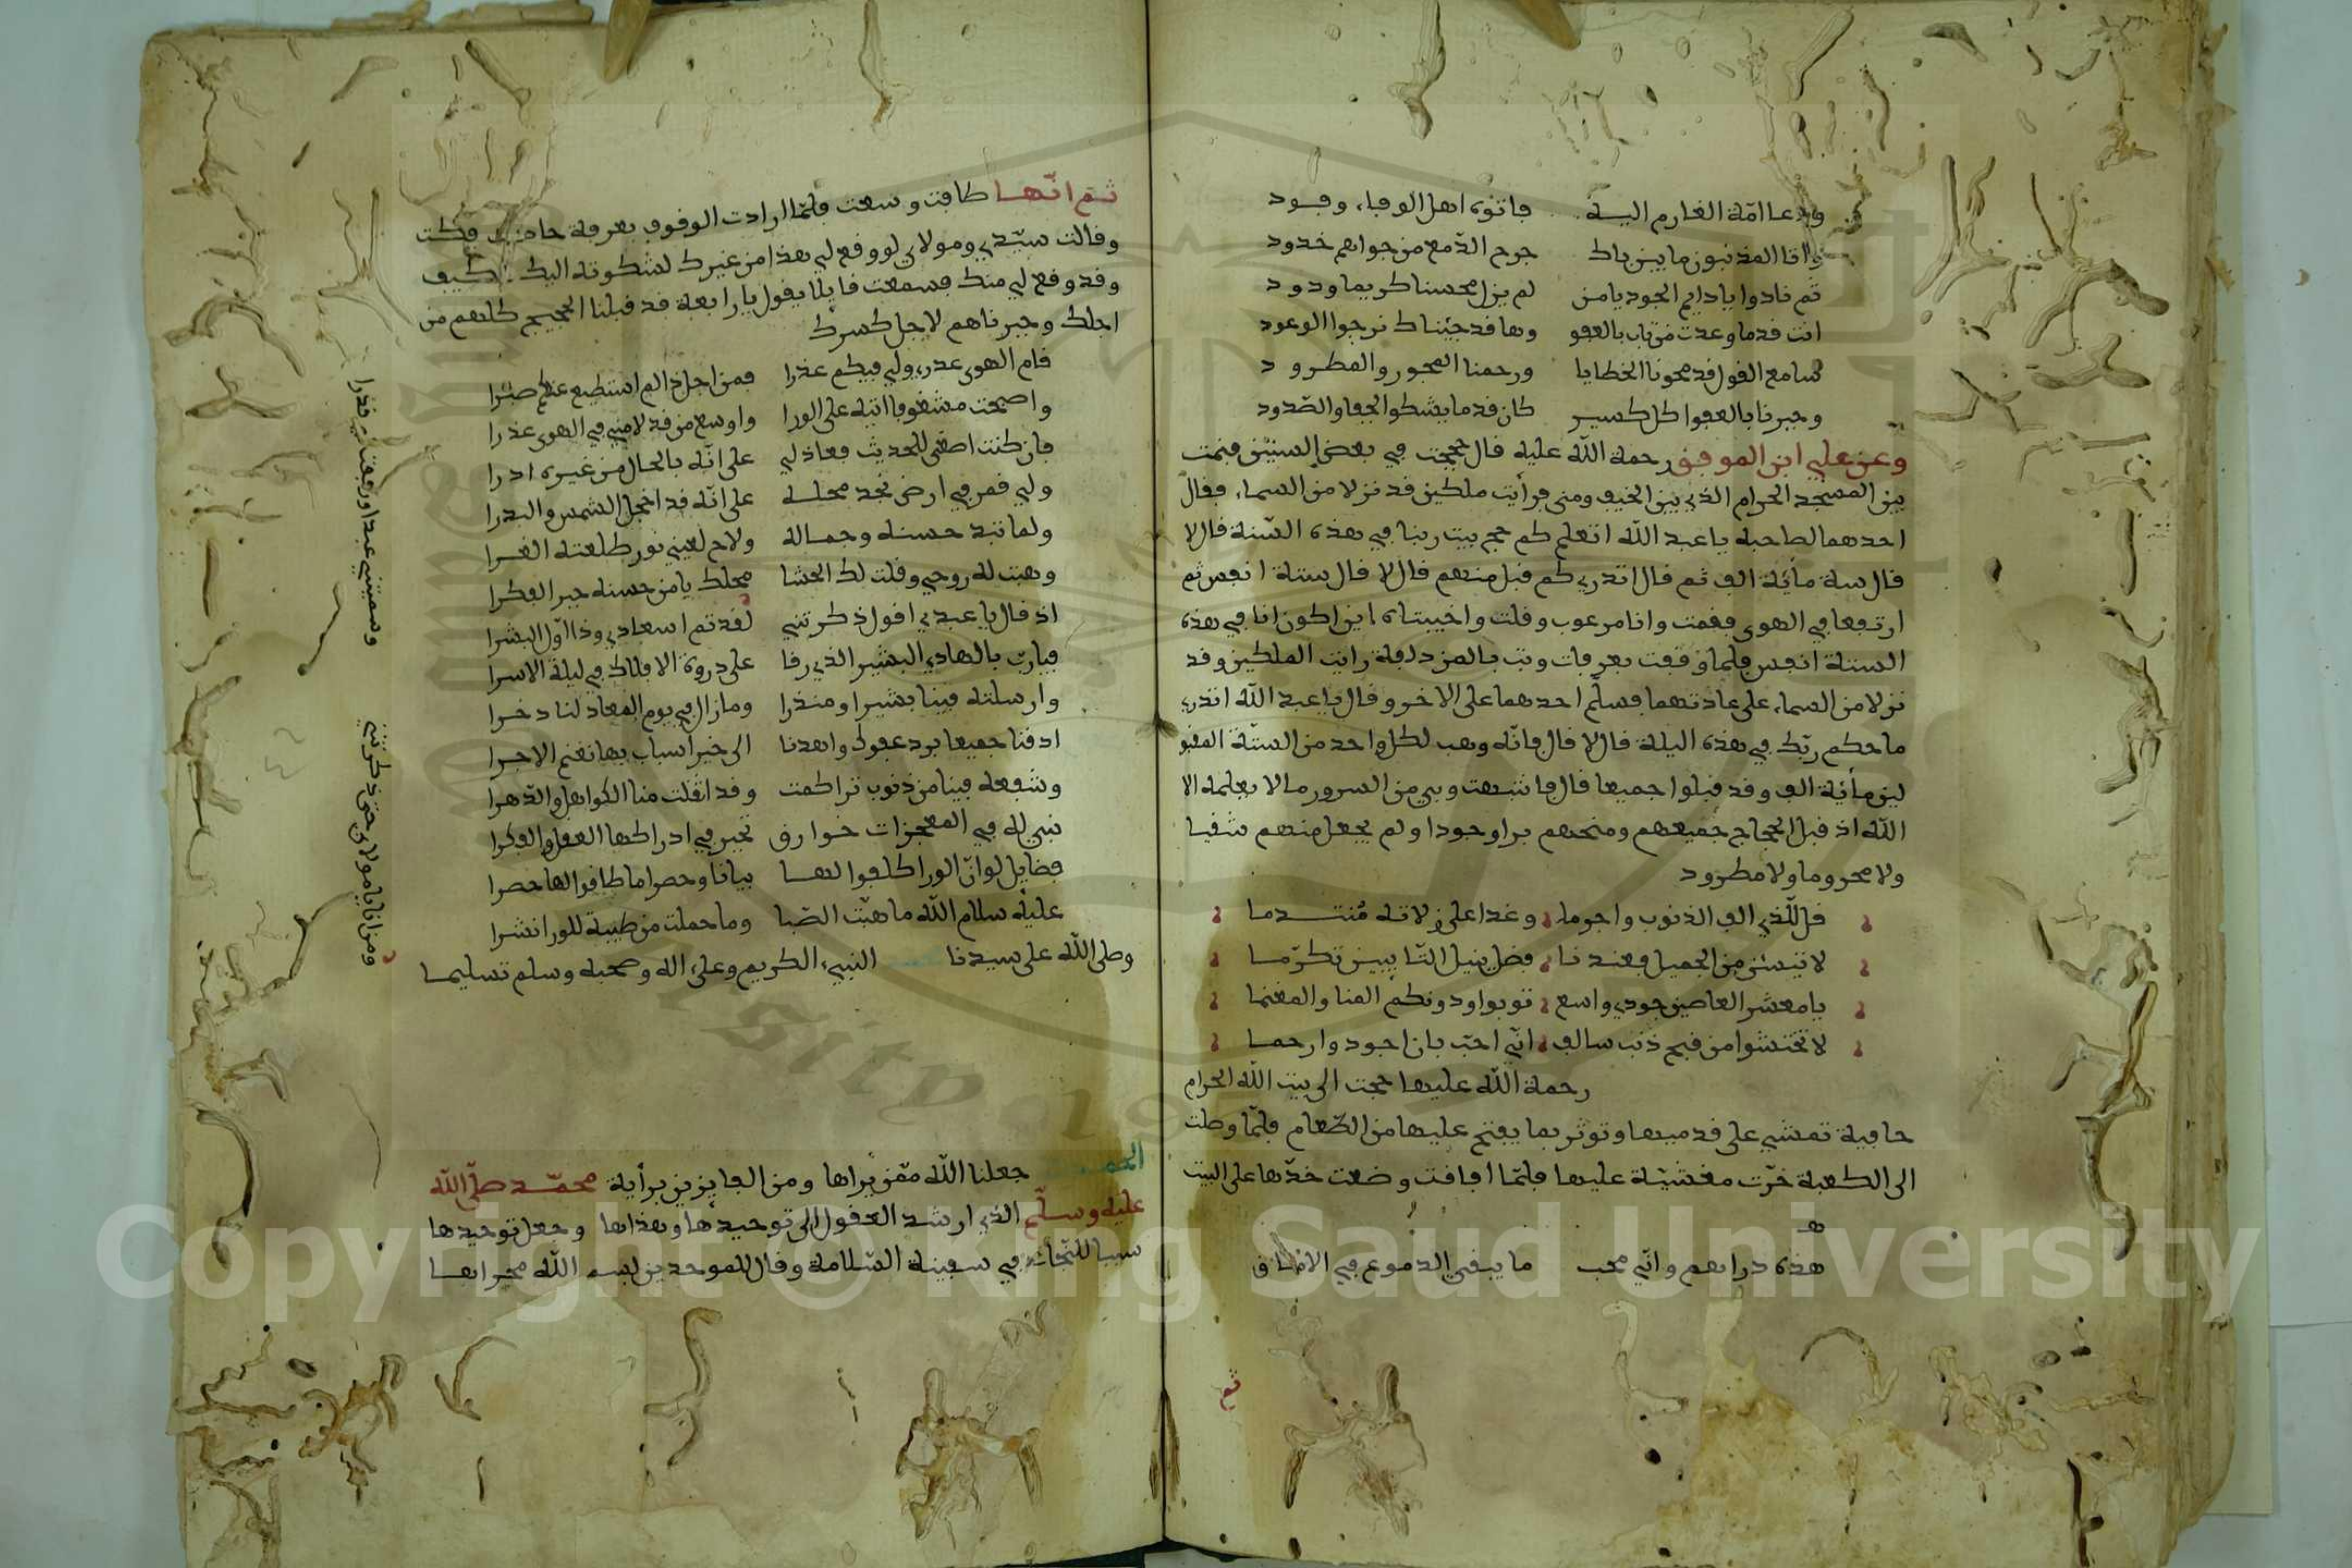 ودعا امّة الغارم اليه فاتوه اهل الوفاء وفود
واتا المذنبون ما بين باك جرح الدّمع من جواهم خدود
ثم نادوا يا دايم الجود يا من لم يزل محسنا كريما ودود
انت قدما وعدت من تاب بالعفو وها قد جيناك نرجوا الوعود
سامع القول قد محونا الخطايا ورحمنا المهجور والمطرود
وجبرنا بالعفوا كل كسير كان قدما يشكوا الجفا والصّدود
وعن علي ابن الموفق رحمة اللّه عليه قال حججت في بعض السنين فنمت
بين المسجد الحرام الذي بين الخيف ومنى فرأيت ملكين قد نزلا من السماء فقال
احدهما لصاحبه يا عبد اللّه اتعلم كم حج بيت ربنا في هذه السّنة قال لا
قال ستة مأية الف ثم قال اتدري كم قبل منهم قال لا قال ستة انفس ثم
ارتفعا في الهوى فقمت وانا مرعوب وقلت واخيبتاه اين اكون انا في هذه
الستة انفس فلما وقفت بعرفات وبت بالمزدلفة رايت الملكين وقد
نزلا من السماء على عادتهما فسلّم احدهما على الاخر وقال يا عبد اللّه اتدري
ما حكم ربّك في هذه اليلة قال لا قال فانّه وهب لكل واحد من الستّة المقبو
لين مأية الف وقد قبلوا جميعا قال فانتبهت وبي من السرور ما لا يعلمه الا
اللّه اذ قبل الحجاج جميعهم ومنحهم برا وجودا ولم يجعل منهم شقيا
ولا محروما ولا مطرود
قل للّذي الف الذنوب واجرما وغدا على زلاته مُتندما
لا تيئسن من الجميل فعندنا فضل ينيل التّايبين تكرّما
يا معشر العاصين جودي واسع توبوا ودونكم المنا والمغنما
لا تختشوا من قبح ذنب سالف انّي احبّ بان اجود وارحما
رحمة اللّه عليها حجت الى بيت اللّه الحرام
حافية تمشي على قدميها وتوثر بما يفتح عليها من الطّعام فلمّا وصلت
الى الكعبة خرّت مغشيّة عليها فلمّا افاقت وضعت خدّها على البيت
هذه دارهم وانّي محب ما يبقى الدموع في الاماق
ثم
ثم انّها طافت وسعت فلمّا ارادت الوقوف بعرفة حاضت فبكت
وقالت سيّدي ومولاي لو وقع لي هذا من غيرك لشكوته اليك فكيف
وقد وقع لي منك فسمعت قايلا يقول يا رابعة قد قبلنا الحجيج كلهم من
اجلك وجبرناهم لاجل كسرك
قام الهوى عذري ولي فيكم عذرا فمن اجل ذا لم استطيع عنكم صبرا
واصبحت مشغوفا اتيه على الورا واوسع من قد لامني في الهوى عذرا
فان كنت اصغي للحديث فعاذلي على انّه بالحال من غيره ادرا
ولي قمر في ارض نجد محله على انّه قد اخجل الشمس والبدرا
ولما تبد حسنه وجماله ولاح لعيني نور طلعته الغرا
وهبت له روحي وقلت لك الحشا محلك يا من حسنه حير الفكرا
اذ قال يا عبدي اقول ذكرتني لقد تم اسعادي وذا اوّل البشرا
فيارب بالهادي البشير الذي رقا على دروة الافلاك في ليلة الاسرا
وارسلته فينا بشيرا ومنذرا وما زال في يوم المعاد لنا دخرا
اذقنا جميعا برد عفوك واهدنا الى خير اسباب بها نغنم الاجرا
وشفعه فينا من ذنوب تراكمت وقد اثقلت منا الكواهل والدّهرا
نبي له في المعجزات خوارق تحير في ادراكها العقل والفكرا
فضايل لو انّ الورا كلفوا لها بيانا وحصرا ما طاقوا لها حصرا
عليه سلام اللّه ما هبّت الصّبا وما حملت من طيبة للورا نشرا
وصلى اللّه على سيدنا النبيء الكريم وعلى اله وصحبه وسلم تسليما
جعلنا اللّه ممّن يراها ومن الفايزين برأية محمّد صلّى اللّه
عليه وسلّم الذي ارشد العقول الى توحيدها وهداها وجعل توحيدها
سببا للنّجاة في سفينة السّلامة وقال للموحدين لبسم اللّه مجراها
ومن انا يا مولاي حتى ذكرتني وسميتني عبدا ورفعت لي قدرا